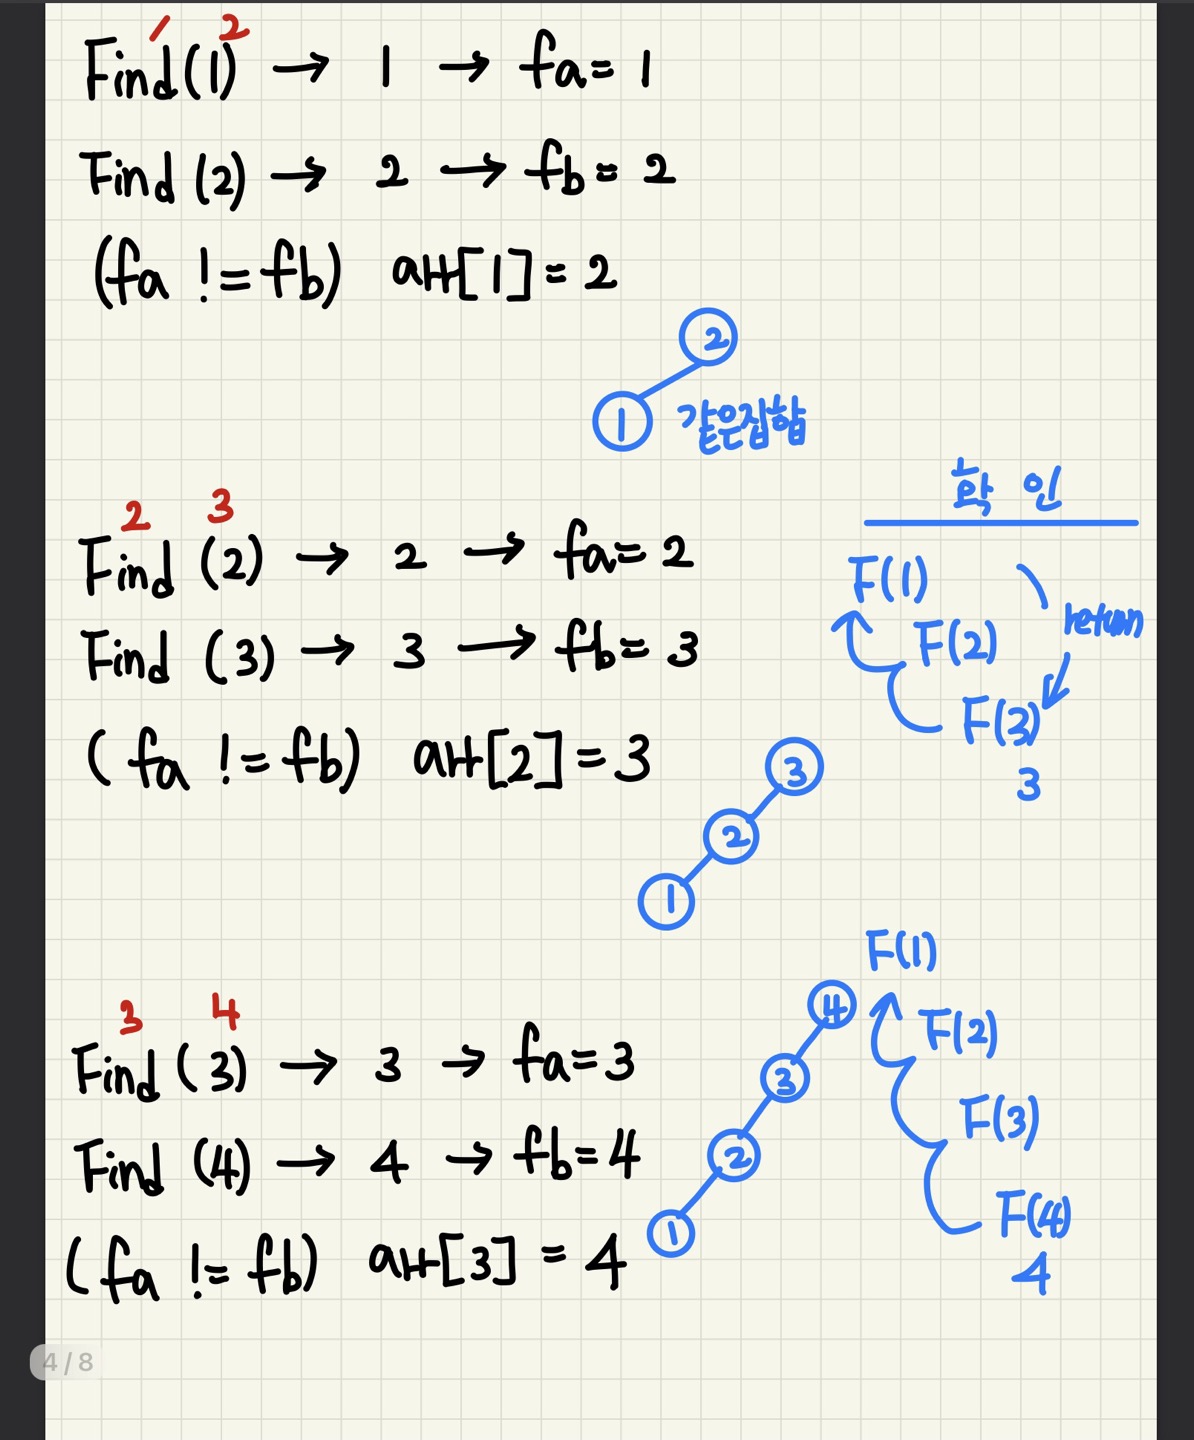 1 2
Find(1) → 1 → fa = 1
Find (2) → 2 → fb = 2
(fa != fb) arr[1] = 2
2
1 같은집합
2 3
Find (2) → 2 → fa = 2
Find (3) → 3 → fb = 3
(fa != fb) arr[2] = 3
3
2
1
확인
F(1)
return
F(2)
F(3)
3
3 4
Find (3) → 3 → fa = 3
Find (4) → 4 → fb = 4
(fa != fb) arr[3] = 4
4
3
2
1
F(1)
F(2)
F(3)
F(4)
4
4 / 8